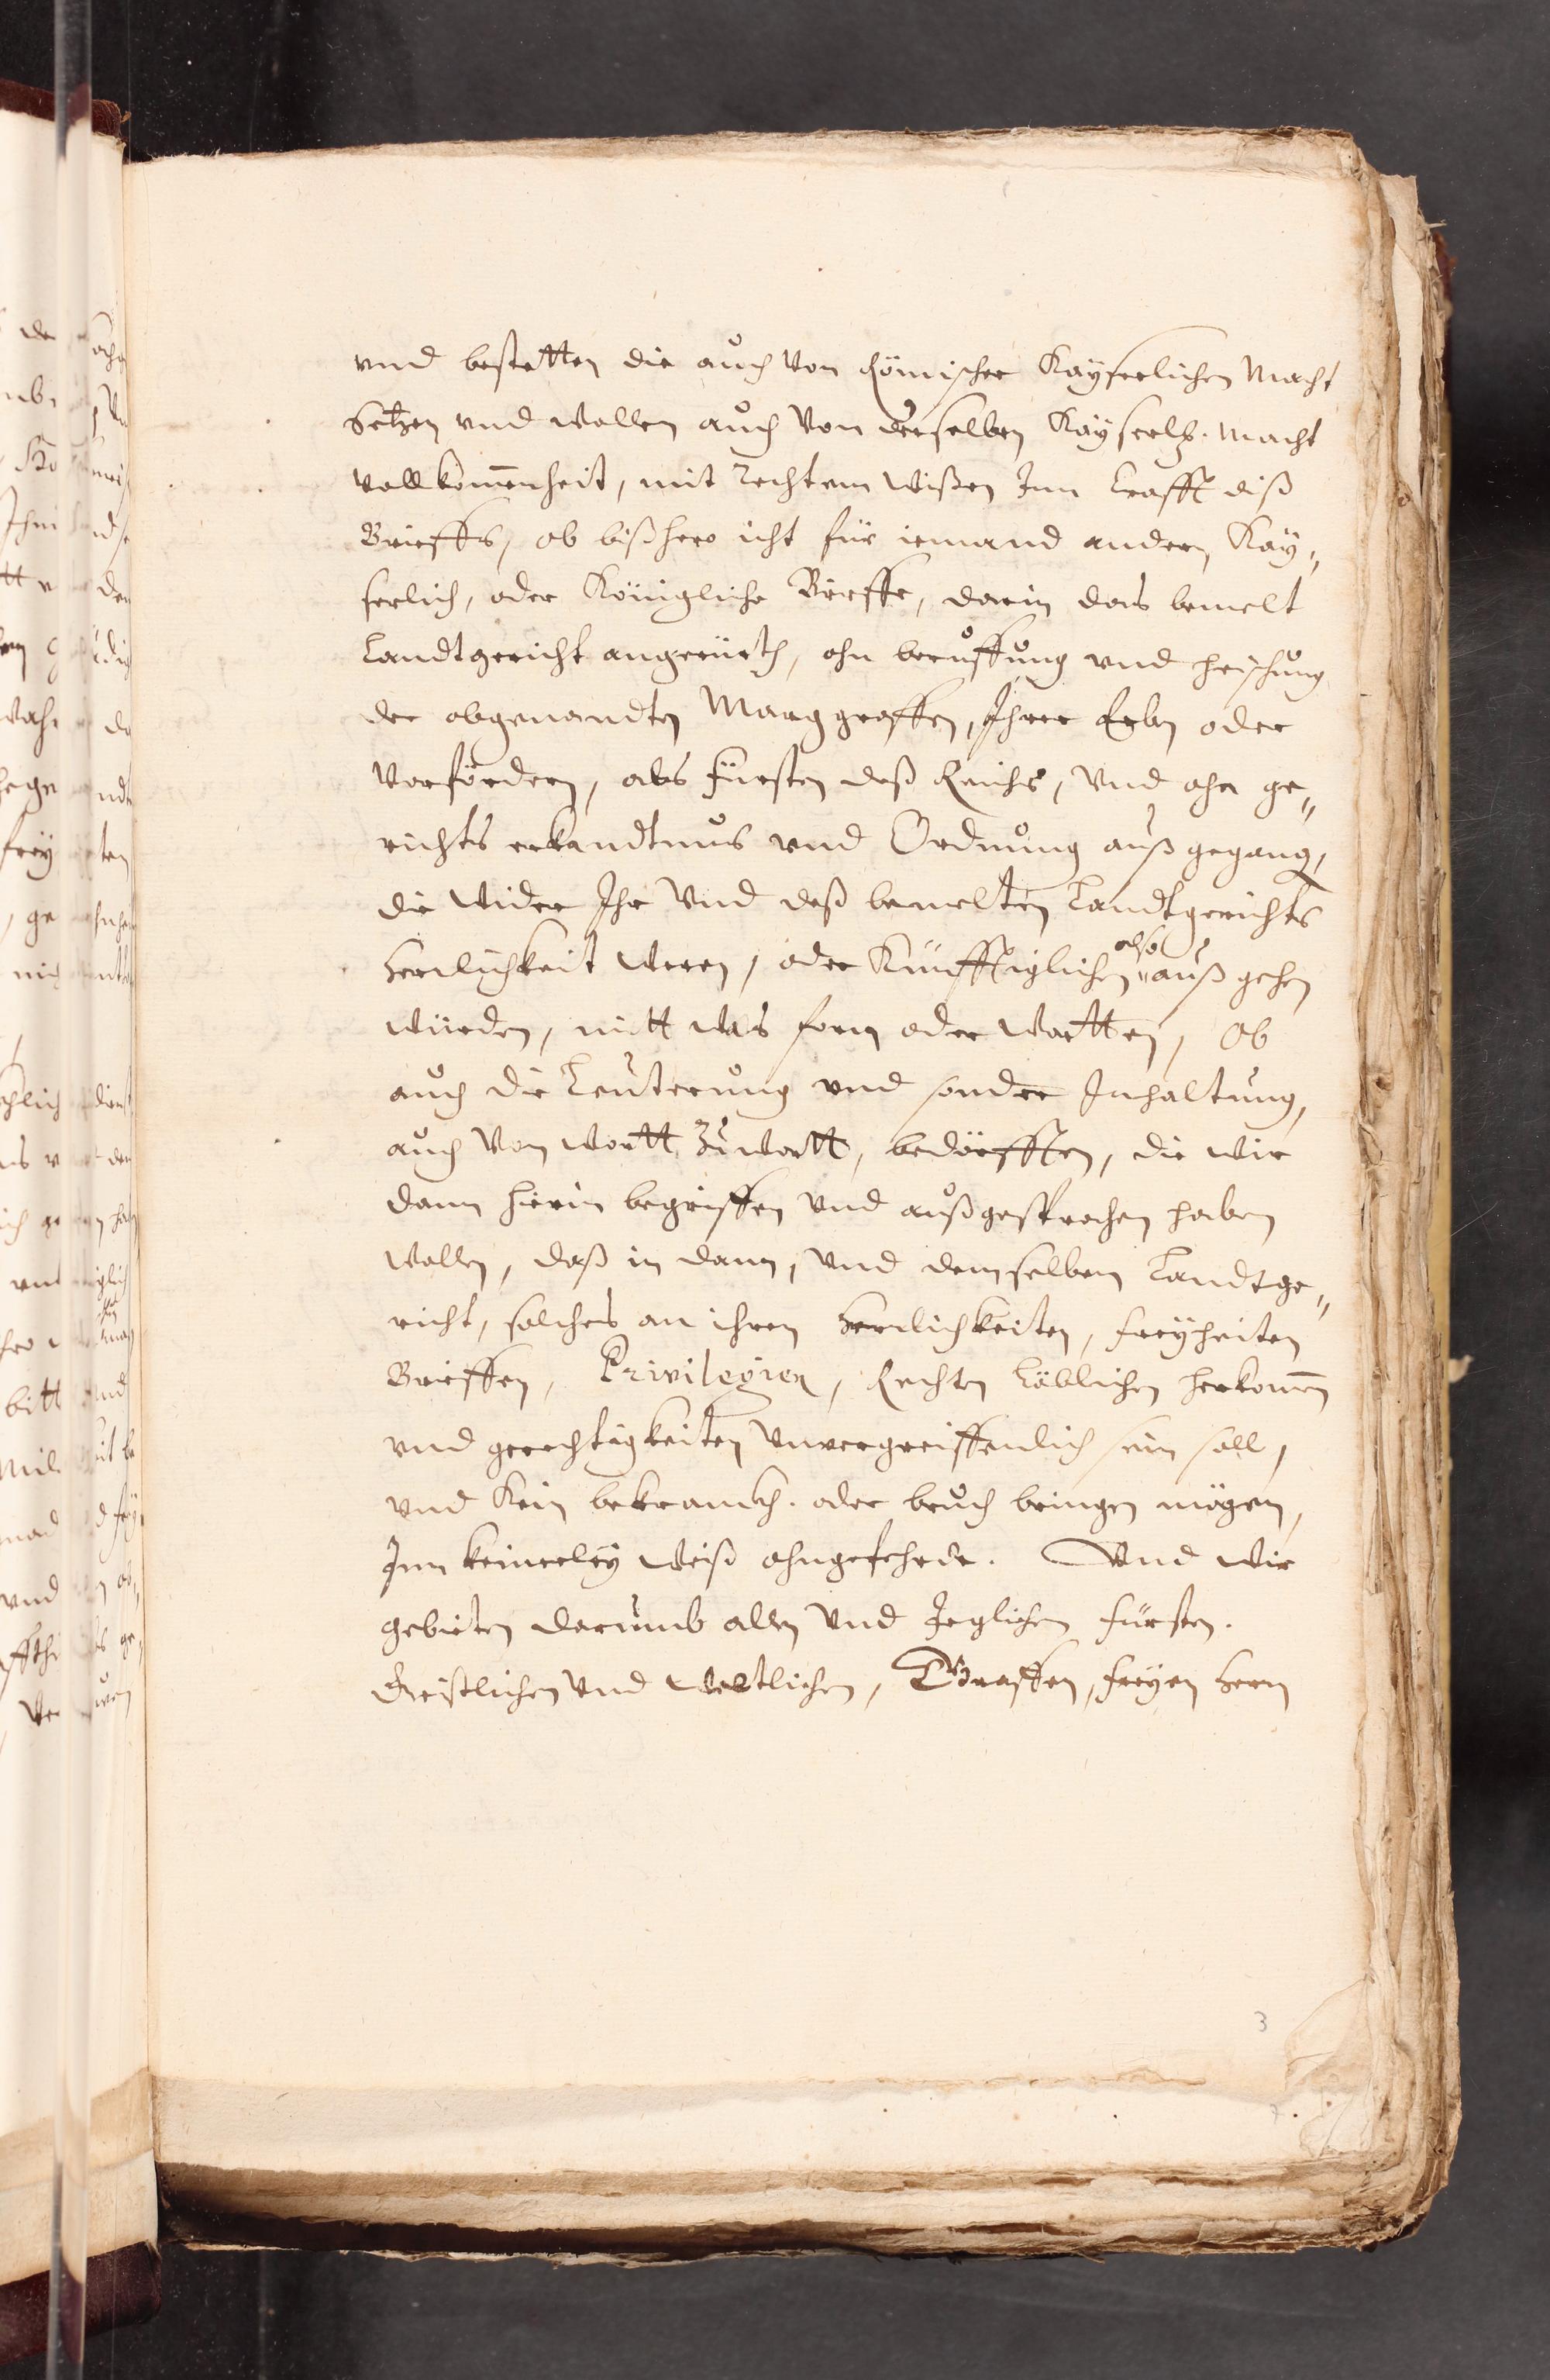 vnd bestetten die auch von Römischer Kayserlichen Macht
Setzen vnd wollen auch von derselben Kayserlch. Macht
vollkommenheit, mit rechtem wißen Inn Krafft diß
Brieffs, ob bißhero icht für iemand andern, Kay„
serlich, oder Königliche Brieffe, darin das bemelt
Landtgericht angerürth, ohn beruffung vnd heischung
der obgenandten Marggraffen, Ihrer Erben oder
Vorfördern, als Fürsten deß Reichs, Vnd ohn ge„
richts erkandtnus vnd Ordnung außgegang,
die wider Ihr Vnd deß bemelten Landtgerichts
Herrlichkeit weren, oder Künfftiglichen also außgehen
würden, mitt was form oder wortten, Ob
auch die Leuterung vnd sonder Inhaltung,
auch von wortt zuwortt, bedörfften, die wir
dann hierin begriffen Vnd außgesprochen haben
wollen, daß in dann, Vnd demselben Landtge„
richt, solches an ihren Herrlichkeiten, freyheiten
Brieffen, Privilegien, Rechten Löblichen herkommen
vnd gerechtigkeiten Vnvergreiffenlich sein soll,
vnd Kein bekranckh. oder bruch bringen mögen,
Inn keinerley weiß ohngefehrde. Vnd wir
gebieten darumb allen Vnd Jeglichen Fürsten.
Geistlichen Vnd weltlichen, Graffen, freyen Herrn
3